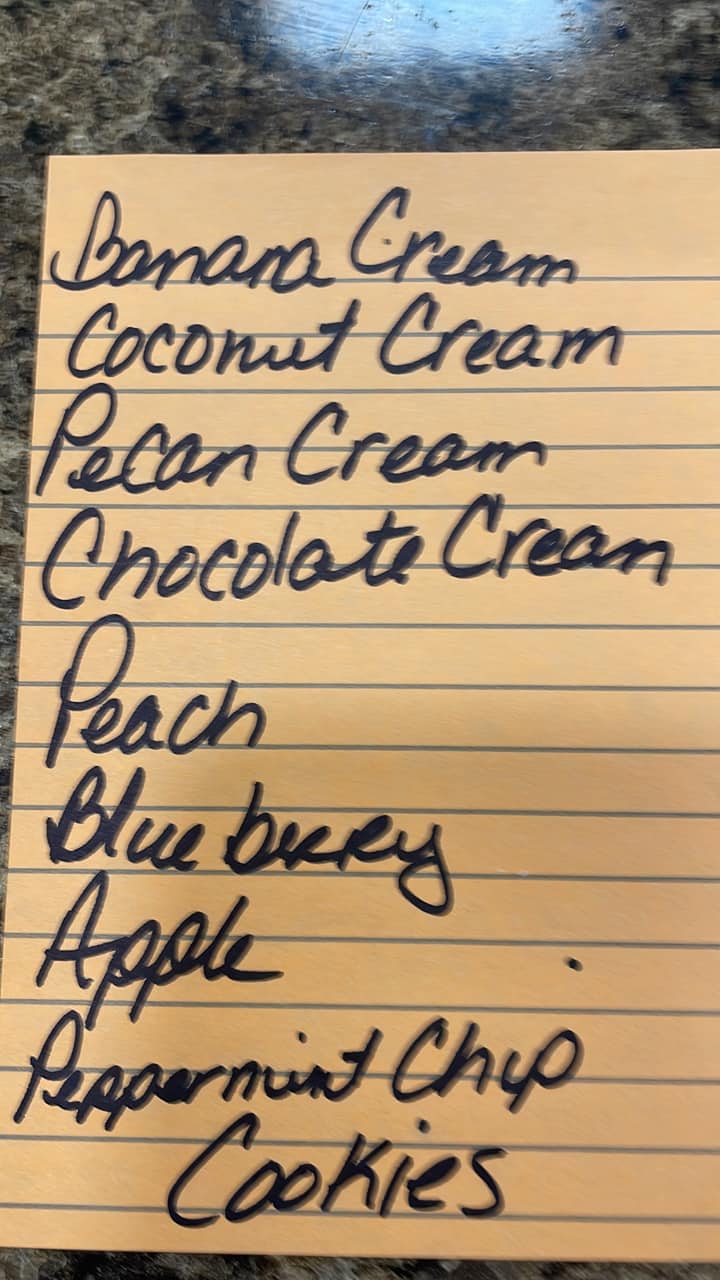 Banana Cream
Coconut Cream
Pecan Cream
Chocolate Cream
Peach
Blueberry
Apple
Peppermint Chip
Cookies